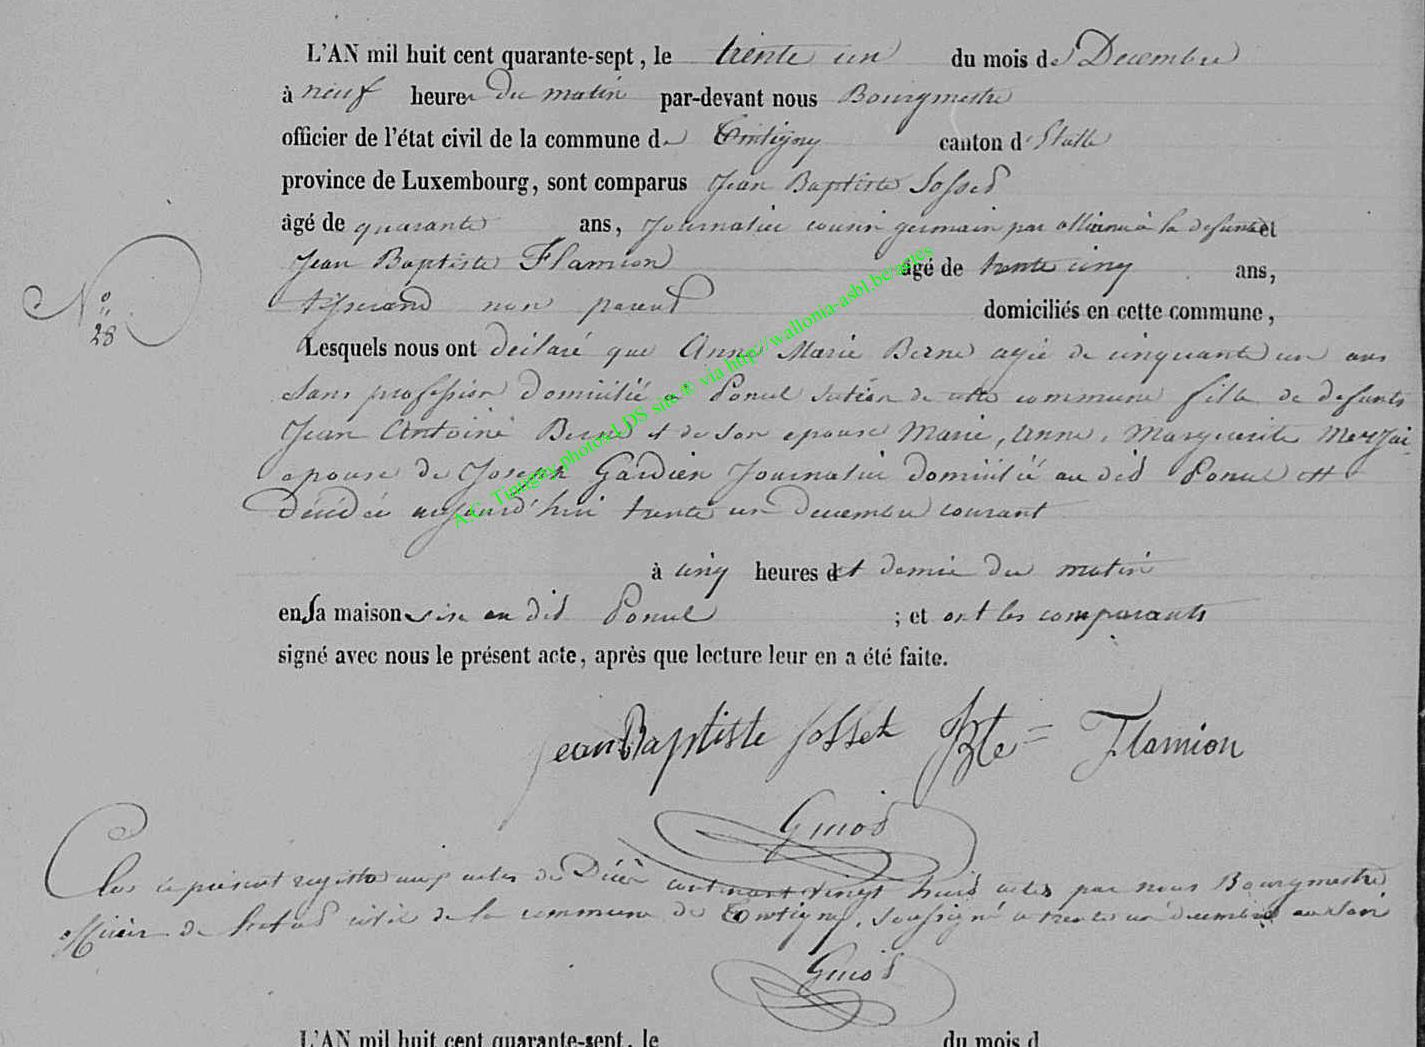 L'AN mil huit cent quarante-sept, le trente un du mois de Decembre
à neuf heures du matin par-devant nous Bourgmestre
officier de l'état civil de la commune de Tintigny canton d'Etalle
province de Luxembourg, sont comparus Jean Baptiste Josset
âgé de quarante ans, Journalier cousin germain par alliance à la defunte et
Jean Baptiste Flamion âgé de trente cinq ans,
tisserand non parent domiciliés en cette commune,
N° 28
Lesquels nous ont déclaré que Anne Marie Berne agée de cinquante un ans
sans profession domiciliée a Ponul section de cette commune fille de defunts
Jean Antoine Berne et de son epouse Marie, Anne, Marguerite
epouse de Joseph Gardien Journalier domicilié au dit Ponul est
décédée aujourd'hui trente un decembre courant
à cinq heures et demie du matin
en sa maison sise au dit Ponul ; et ont les comparants
signé avec nous le présent acte, après que lecture leur en a été faite.
Jean Baptiste Josset JBte Flamion
Guiot
Clos le présent registre aux actes de Décès contenant vingt huit actes par nous Bourgmestre
officier de l'état civil de la commune de Tintigny, soussigné le trente un decembre au soir
Guiot
L'AN mil huit cent quarante-sept, le du mois d
A.C. Tintigny photos LDS site © via http://wallonia-asbl.be/actes